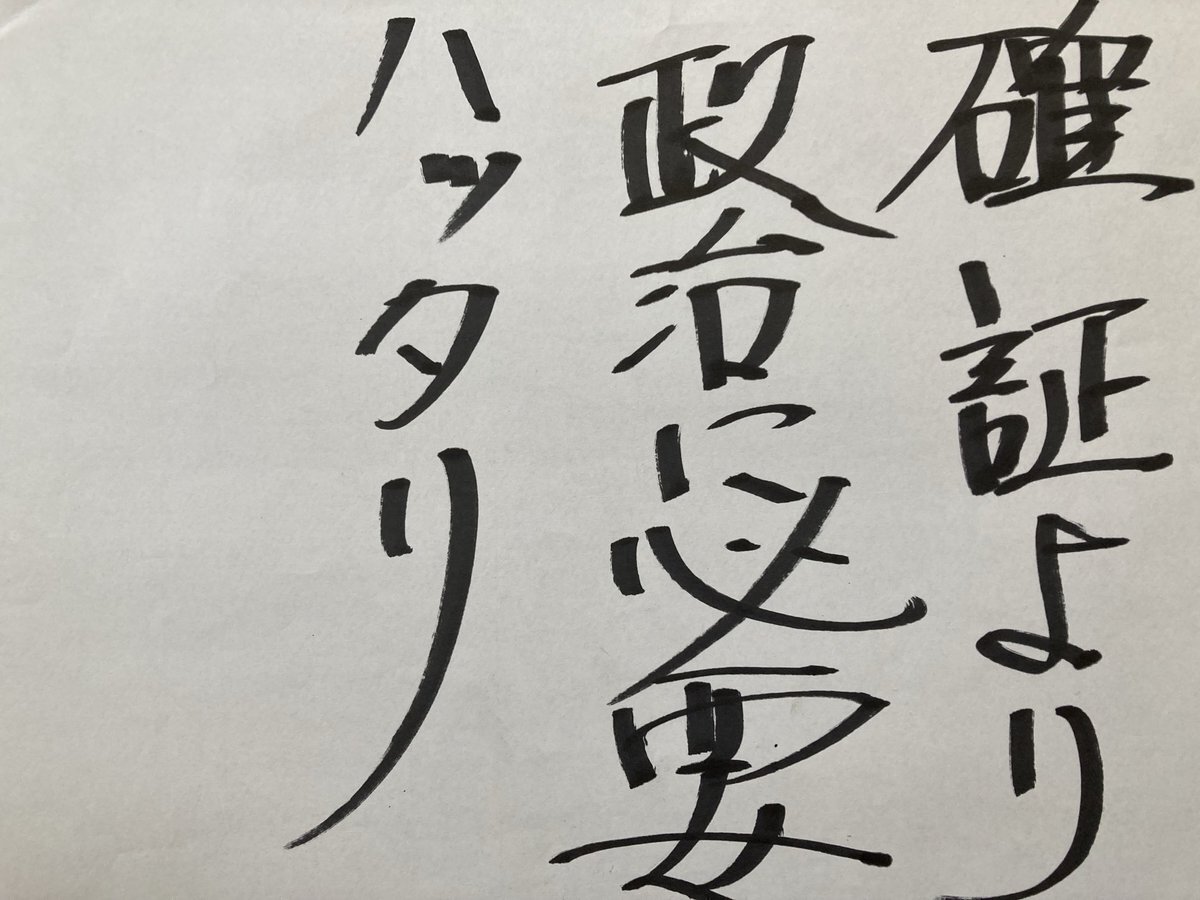 確証より
政治に必要
ハッタリ